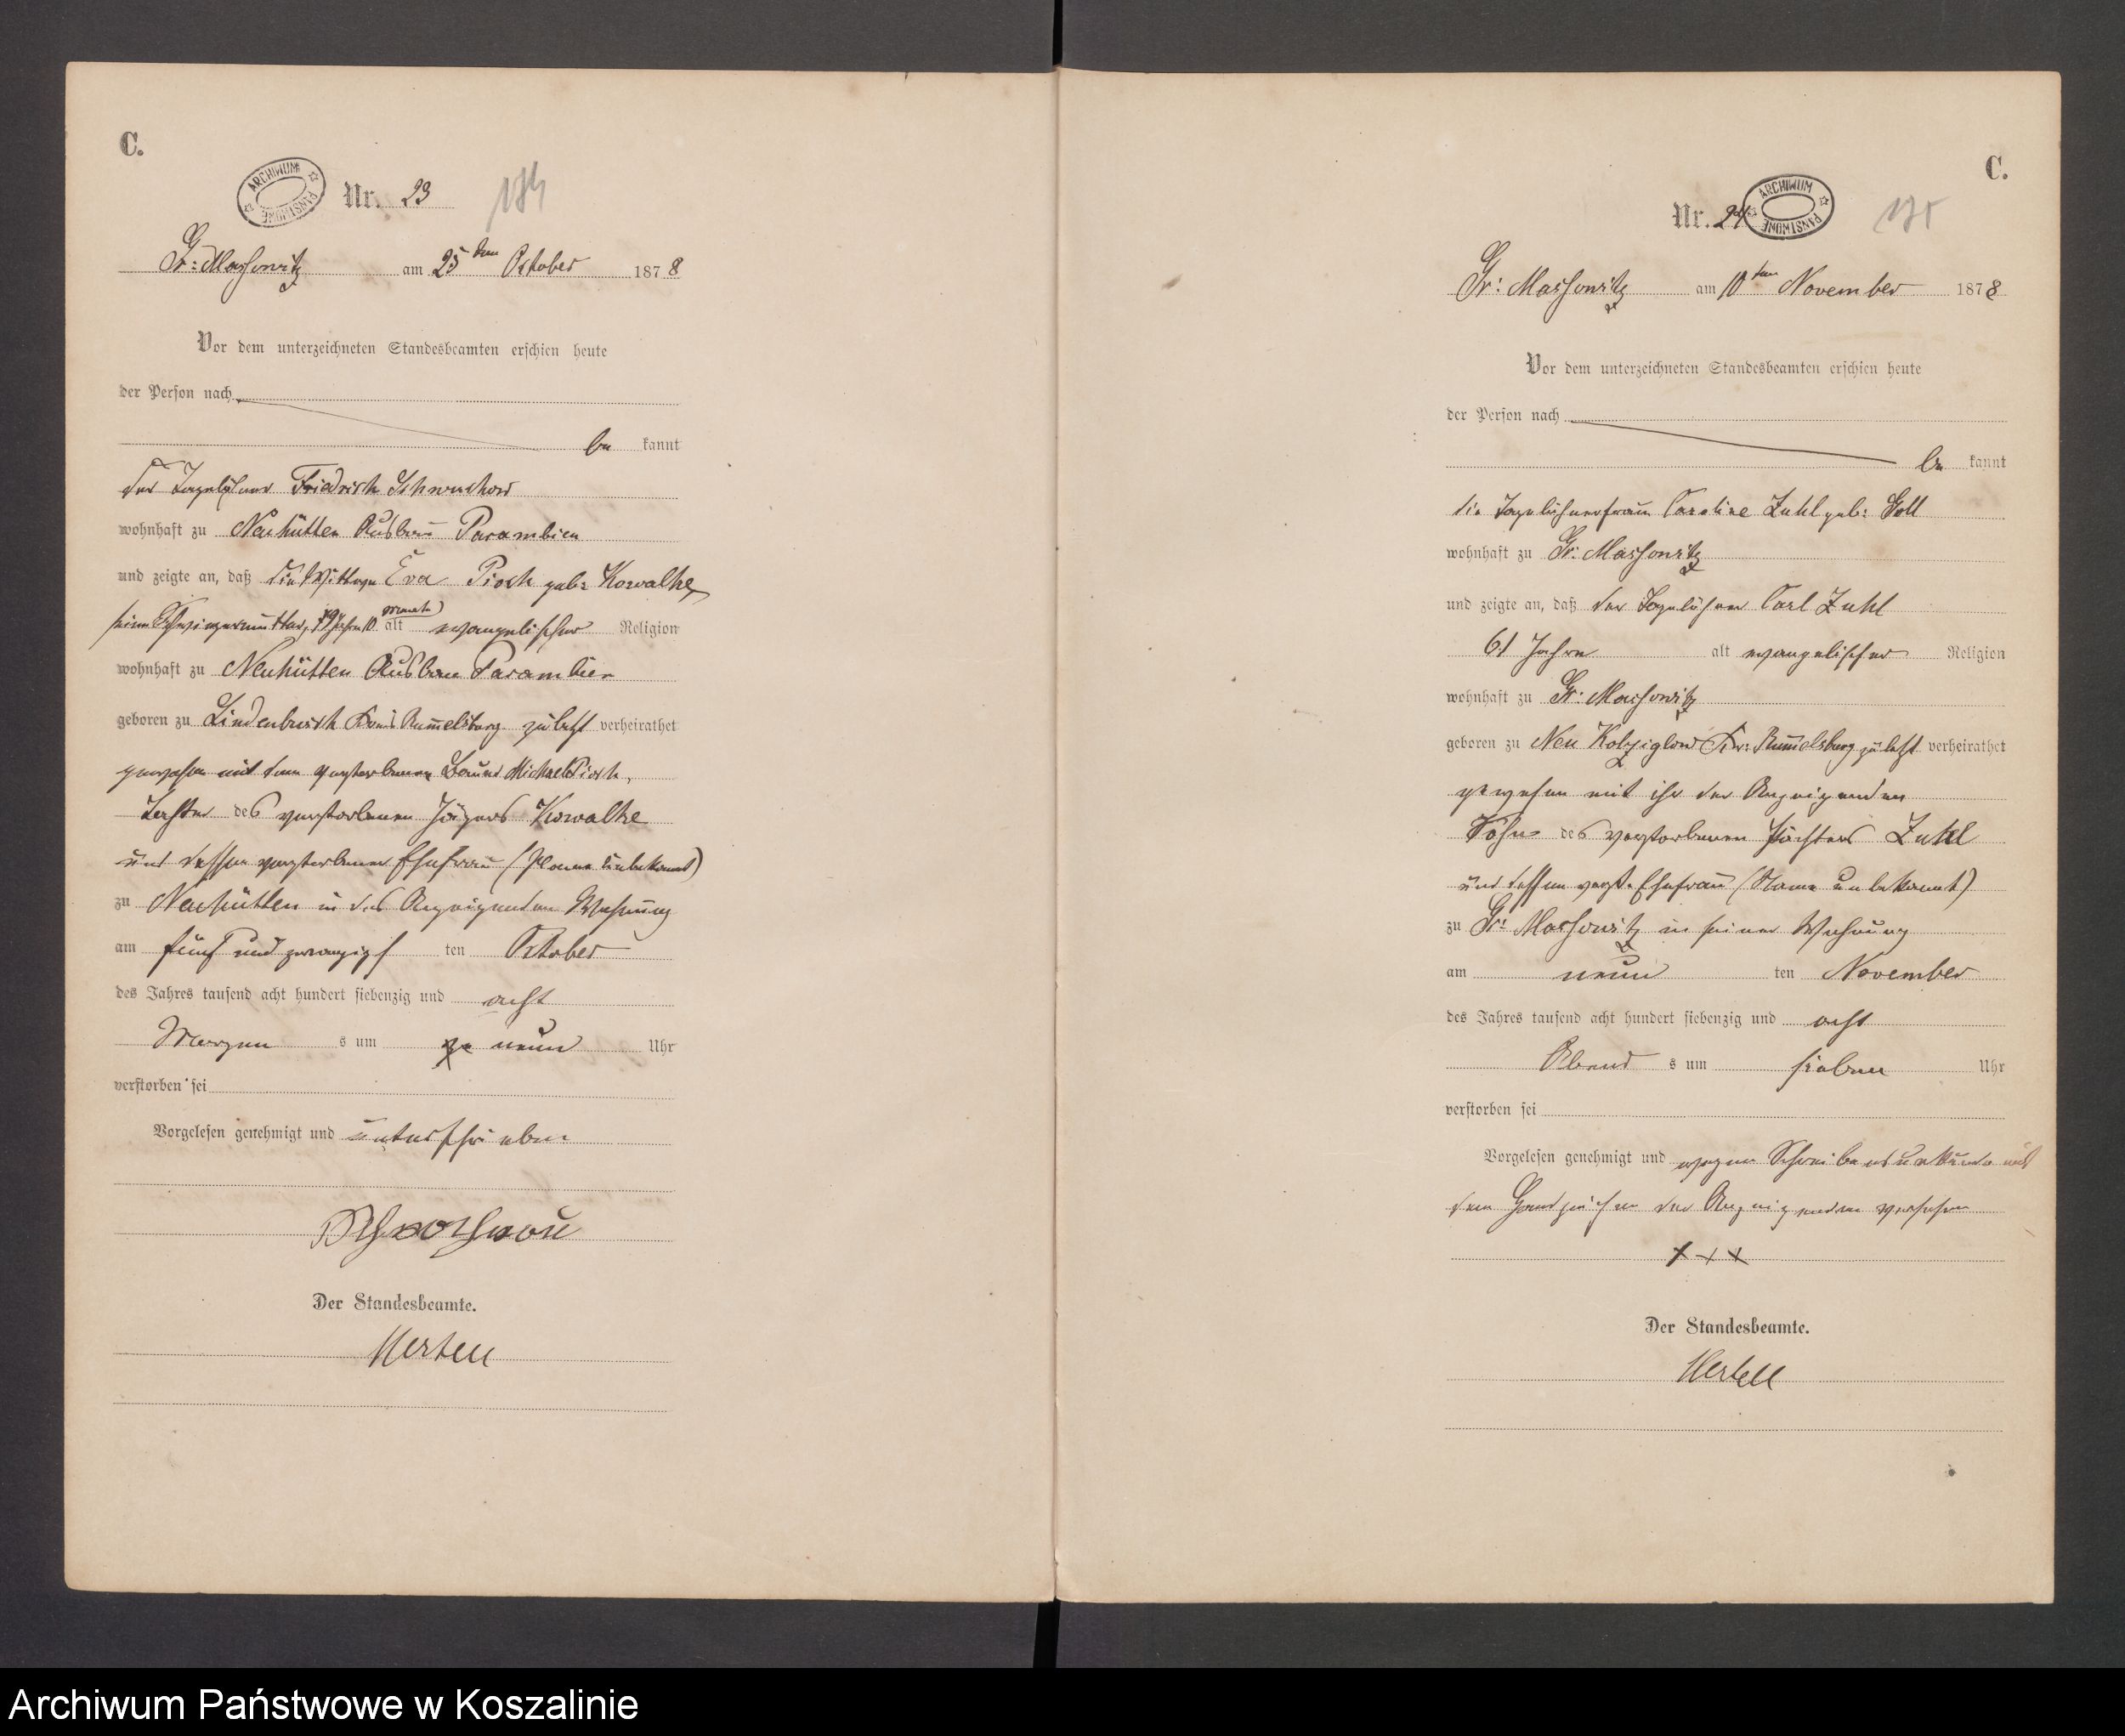 C.
ARCHIWUM PAŃSTWOWE
Nr. 23
Gr: Massowitz am 25ten October 1878
Vor dem unterzeichneten Standesbeamten erschien heute
der Person nach
be kannt
der Tagelöhner Friedrich
wohnhaft zu Neuhütten Ausbau Parambien
und zeigte an, daß die Wittwe Eva Pioch geb: Kowalke
seine Schwiegermutter, 79 Jahre 10 Monate alt evangelischer Religion
wohnhaft zu Neuhütten Ausbau Parambien
geboren zu Lindenbusch Kreis Rummelsburg zuletzt verheirathet
gewesen mit dem verstorbenen Bauer Michael Pioch,
Tochter des verstorbenen Jägers Kowalke
und dessen verstorbener Ehefrau (Name unbekannt)
zu Neuhütten in des Anzeigenden Wohnung
am fünf und zwanzigs ten October
des Jahres tausend acht hundert siebenzig und acht
Morgen s um neun Uhr
verstorben sei
Vorgelesen genehmigt und unterschrieben
Der Standesbeamte.
C.
ARCHIWUM PAŃSTWOWE
Nr. 24
175
Gr: Massowitz am 10ten November 1878
Vor dem unterzeichneten Standesbeamten erschien heute
der Person nach
be kannt
die Tagelöhnerfrau Caroline Zuhl geb:
wohnhaft zu Gr: Massowitz
und zeigte an, daß der Tagelöhner Carl Zuhl
61 Jahre alt evangelischer Religion
wohnhaft zu Gr: Massowitz
geboren zu Neu Kolziglow Kr: Rummelsburg zuletzt verheirathet
gewesen mit ihr der Anzeigenden
Sohn des verstorbenen Pächters Zuhl
und dessen verst. Ehefrau (Name unbekannt)
zu Gr: Massowitz in seiner Wohnung
am neun ten November
des Jahres tausend acht hundert siebenzig und acht
Abend s um sieben Uhr
verstorben sei
Vorgelesen genehmigt und wegen Schreibensunkunde mit
dem Handzeichen der Anzeigenden versehen
+++
Der Standesbeamte.
Archiwum Państwowe w Koszalinie